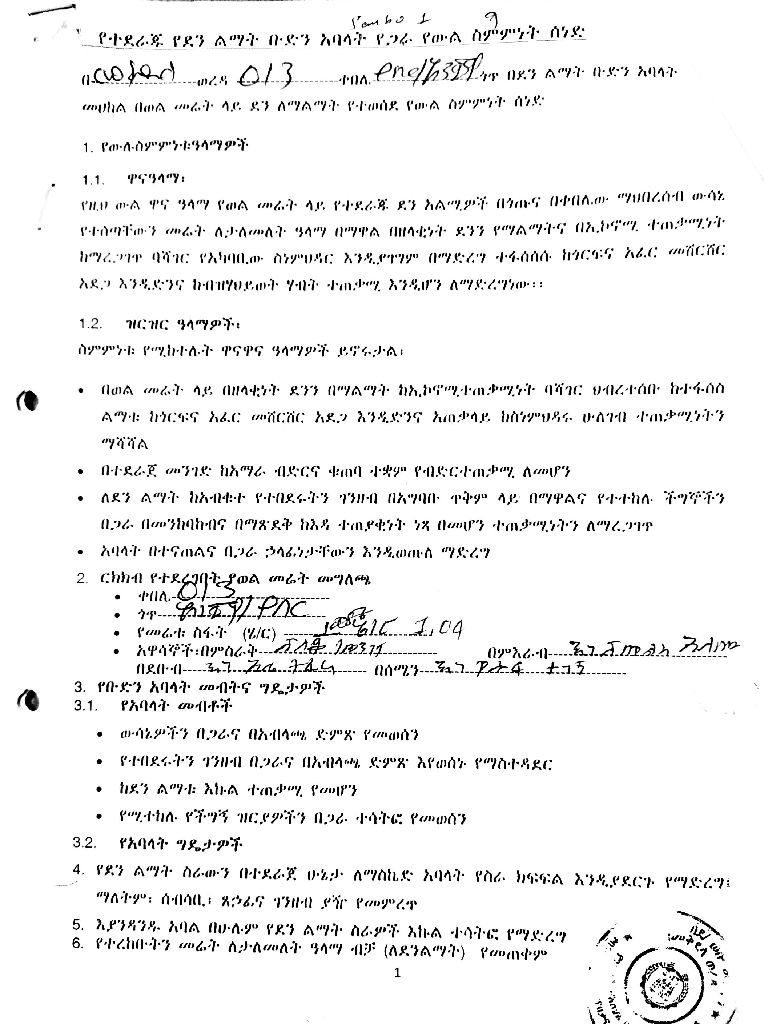 የተደራጁ የደን ልማት ቡድን አባላት የጋራ የውል ስምምነት ሰነድ
በ ወረዳ 013 ቀበሌ ጎጥ በደን ልማት ቡድን አባላት
መሀከል በወል መሬት ላይ ደን ለማልማት የተወሰደ የውል ስምምነት ሰነድ
1. የውሉስምምነቱዓላማዎች
1.1. ዋናዓላማ፡
የዚህ ውል ዋና ዓላማ የወል መሬት ላይ የተደራጁ ደን አልሚዎች በጎጡና በቀበሌው ማህበረሰብ ውሳኔ
የተሰጣቸውን መሬት ለታለመለት ዓላማ በማዋል በዘላቂነት ደንን የማልማትና በኢኮኖሚ ተጠቃሚነት
ከማረጋገጥ ባሻገር የአካባቢው ስነምህዳር እንዲያገግም በማድረግ ተፋሰሰሱ ከጎርፍና አፈር መሸርሸር
አደጋ እንዲድንና ከብዝሃህይወት ሃብት ተጠቃሚ እንዲሆን ለማድረግነው፡፡
1.2. ዝርዝር ዓላማዎች፡
ስምምነቱ የሚከተሉት ዋናዋና ዓላማዎች ይኖሩታል፡
• በወል መሬት ላይ በዘላቂነት ደንን በማልማት ከኢኮኖሚተጠቃሚነት ባሻገር ህብረተሰቡ ከተፋሰስ
ልማቱ ከጎርፍና አፈር መሸርሸር አደጋ እንዲድንና አጠቃላይ ከስነምህዳሩ ሁለገብ ተጠቃሚነትን
ማሻሻል
• በተደራጀ መንገድ ከአማራ ብድርና ቁጠባ ተቋም የብድርተጠቃሚ ለመሆን
• ለደን ልማት ከአብቁተ የተበደሩትን ገንዘብ በአግባቡ ጥቅም ላይ በማዋልና የተተከሉ ችግኞችን
በጋራ በመንከባከብና በማጽደቅ ከእዳ ተጠያቂነት ነጻ በመሆን ተጠቃሚነትን ለማረጋገጥ
• አባላት በተናጠልና በጋራ ኃላፊነታቸውን እንዲወጡ ማድረግ
2. ርክክብ የተደረገበት የወል መሬት መግለጫ
• ቀበሌ 013
• ጎጥ
• የመሬቱ ስፋት (ሄ/ር) 1.04
• አዋሳኞች፡በምስራቅ በምእራብ
በደቡብ በሰሜን
3. የቡድን አባላት መብትና ግዴታዎች
3.1. የአባላት መብቶች
• ውሳኔዎችን በጋራና በአብላጫ ድምጽ የመወሰን
• የተበደሩትን ገንዘብ በጋራና በአብላጫ ድምጽ እየወሰኑ የማስተዳደር
• ከደን ልማቱ እኩል ተጠቃሚ የመሆን
• የሚተከሉ የችግኝ ዝርያዎችን በጋራ ተሳትፎ የመወሰን
3.2. የአባላት ግዴታዎች
4. የደን ልማት ስራውን በተደራጀ ሁኔታ ለማስኬድ አባላት የስራ ክፍፍል እንዲያደርጉ የማድረግ፤
ማለትም፡ ሰብሳቢ፡ ጸኃፊና ገንዘብ ያዥ የመምረጥ
5. እያንዳንዱ አባል በሁሉም የደን ልማት ስራዎች እኩል ተሳትፎ የማድረግ
6. የተረከቡትን መሬት ለታለመለት ዓላማ ብቻ (ለደንልማት) የመጠቀም
1